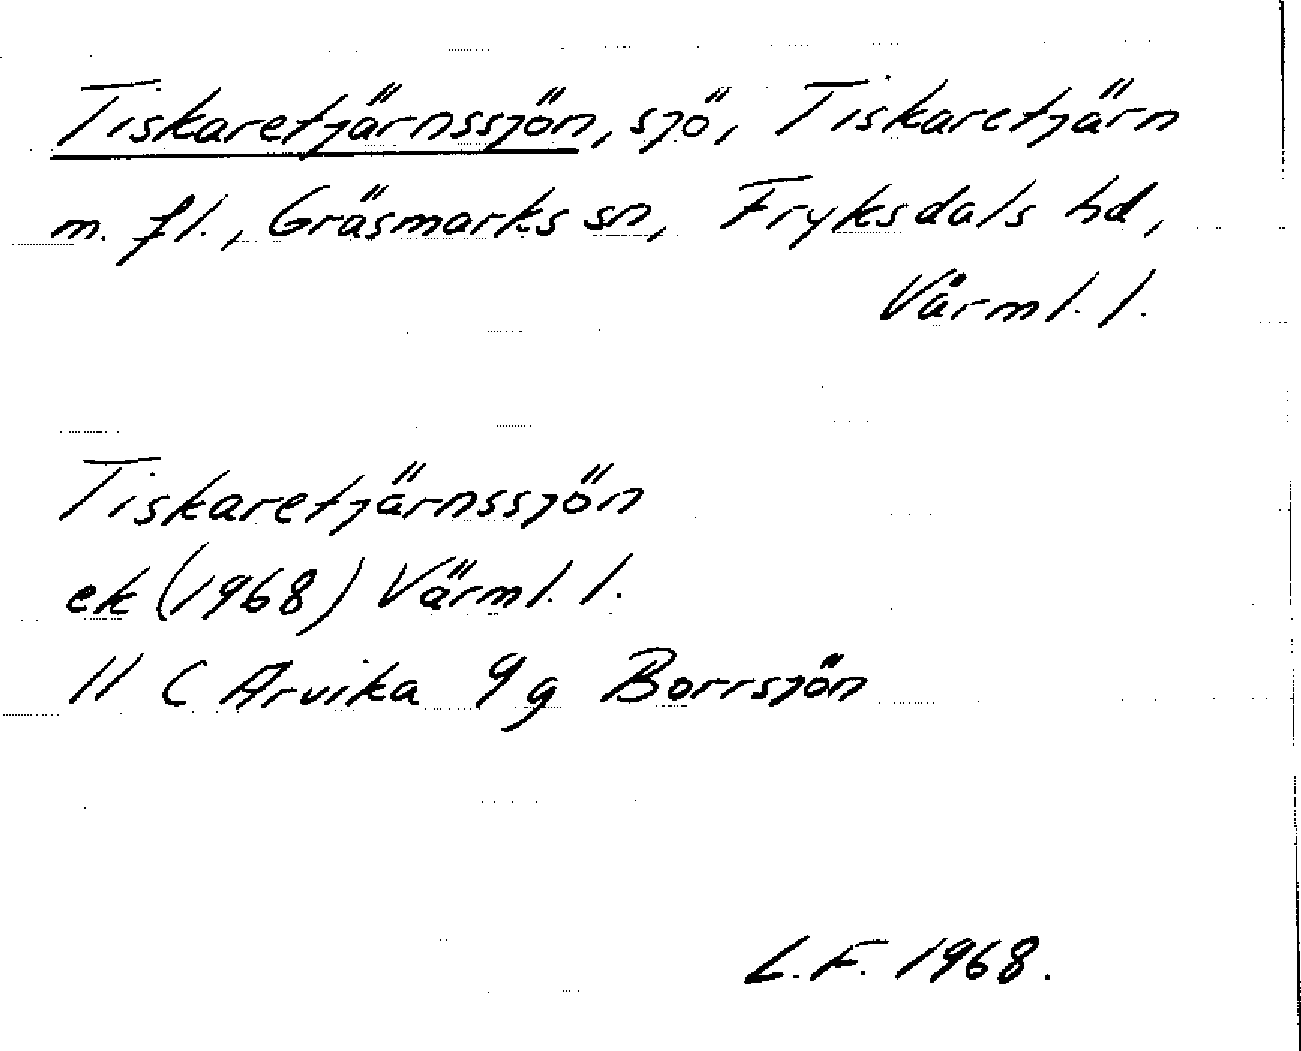 Tiskaretjärnssjön, sjö, Tiskaretjärn
m. fl., Gräsmarks sn, Fryksdals hd,
Värml. l.
Tiskaretjärnssjön
ek (1968) Värml. l.
11 C Arvika 9g Borrsjön
L.F. 1968.